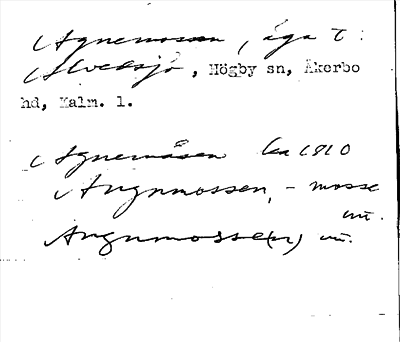 Agnemossen, äga t:
Alvelsjö, Högby sn, Åkerbo
hd, Kalm. l.
Agnemåsen lsa 1810
Angnmossen, - mosse
uü.
Angnmosse(n) uü.